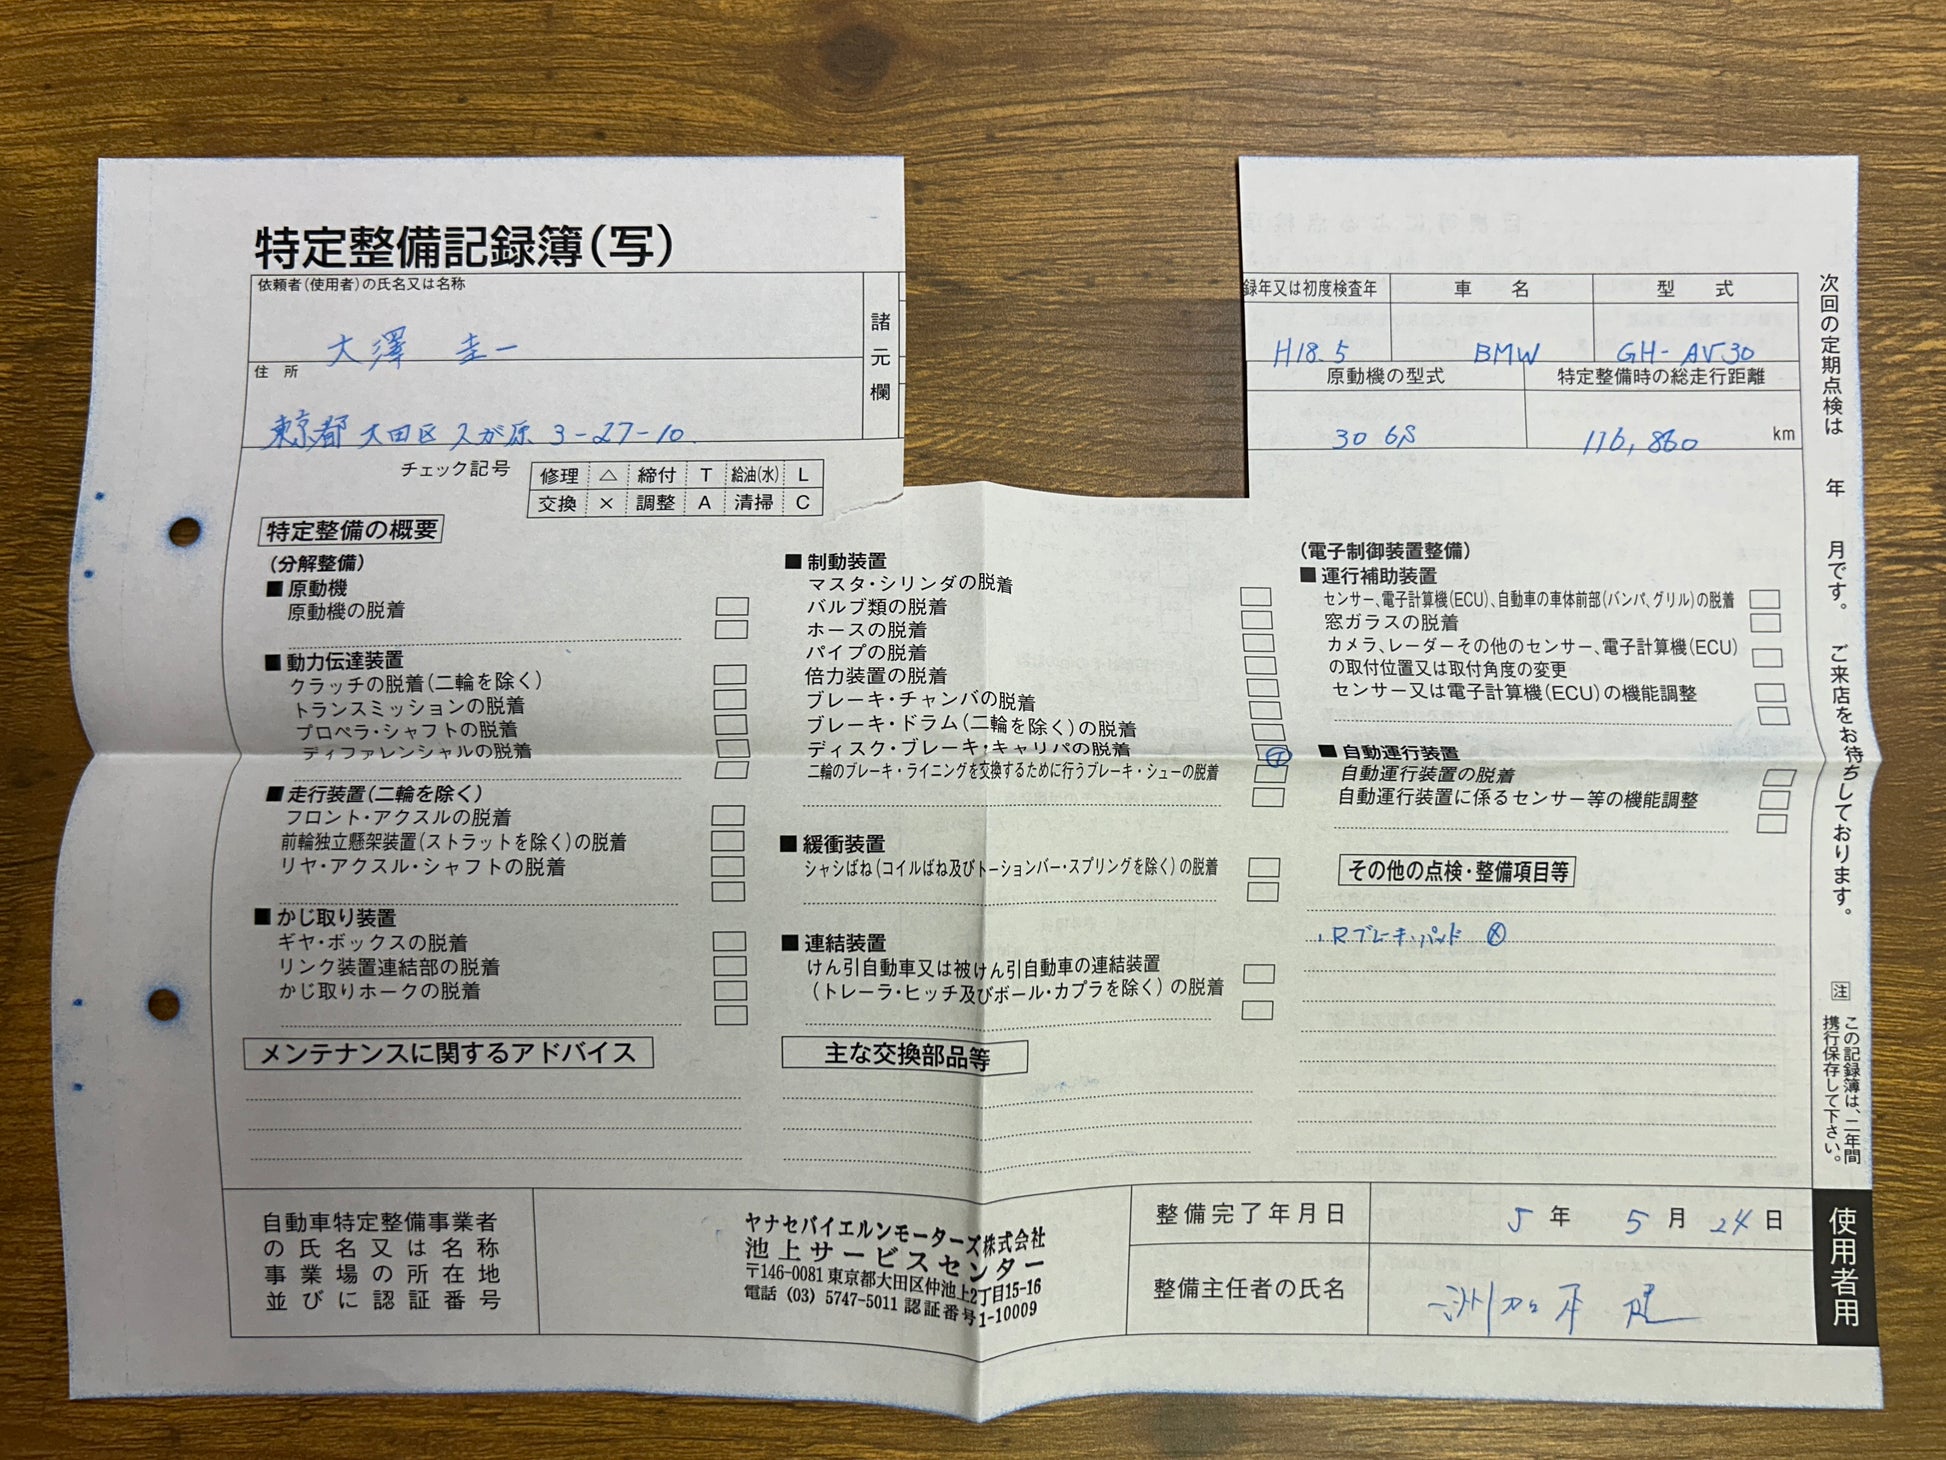 特定整備記録簿(写)
依頼者(使用者)の氏名又は名称
大澤 圭一
住所
東京都大田区久が原 3-27-10
諸元欄
録年又は初度検査年 車名 型式
H18.5 BMW GH-AV30
原動機の型式 特定整備時の総走行距離
30 6S 116,860 km
チェック記号
修理 △ 締付 T 給油(水) L
交換 × 調整 A 清掃 C
特定整備の概要
(分解整備)
■原動機
原動機の脱着
■動力伝達装置
クラッチの脱着(二輪を除く)
トランスミッションの脱着
プロペラ・シャフトの脱着
ディファレンシャルの脱着
■走行装置(二輪を除く)
フロント・アクスルの脱着
前輪独立懸架装置(ストラットを除く)の脱着
リヤ・アクスル・シャフトの脱着
■かじ取り装置
ギヤ・ボックスの脱着
リンク装置連結部の脱着
かじ取りホークの脱着
■制動装置
マスタ・シリンダの脱着
バルブ類の脱着
ホースの脱着
パイプの脱着
倍力装置の脱着
ブレーキ・チャンバの脱着
ブレーキ・ドラム(二輪を除く)の脱着
ディスク・ブレーキ・キャリパの脱着 Ⓣ
二輪のブレーキ・ライニングを交換するために行うブレーキ・シューの脱着
■緩衝装置
シャシばね(コイルばね及びトーションバー・スプリングを除く)の脱着
■連結装置
けん引自動車又は被けん引自動車の連結装置
(トレーラ・ヒッチ及びボール・カプラを除く)の脱着
(電子制御装置整備)
■運行補助装置
センサー、電子計算機(ECU)、自動車の車体前部(バンパ、グリル)の脱着
窓ガラスの脱着
カメラ、レーダーその他のセンサー、電子計算機(ECU)
の取付位置又は取付角度の変更
センサー又は電子計算機(ECU)の機能調整
■自動運行装置
自動運行装置の脱着
自動運行装置に係るセンサー等の機能調整
その他の点検・整備項目等
・Rブレーキパッド ⊗
メンテナンスに関するアドバイス
主な交換部品等
自動車特定整備事業者
の氏名又は名称
事業場の所在地
並びに認証番号
ヤナセバイエルンモーターズ株式会社
池上サービスセンター
〒146-0081 東京都大田区仲池上2丁目15-16
電話 (03) 5747-5011 認証番号 1-10009
整備完了年月日 5年 5月 24日
整備主任者の氏名
次回の定期点検は 年 月です。 ご来店をお待ちしております。
注 この記録簿は、二年間
携行保存して下さい。
使用者用